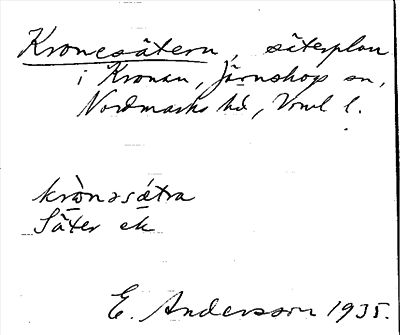 Kronesätern, säterplan
i Kronan, Järnskogs sn,
Nordmarks hd, Vrml l.
krò̠nəsǽtra
Säter ek
E. Anderson 1935.